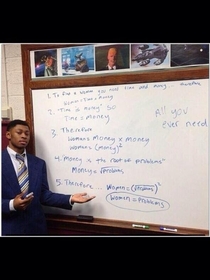 1. To find a woman you need time and money therefore
Woman = Time x Money
2. "Time is money" so
Time = Money
3. Therefore
Woman = Money x Money
Woman = (money)²
4. "Money is the root of problems"
Money = √Problems
5. Therefore... Women = (√Problems)²
Women = Problems
All you
Ever need